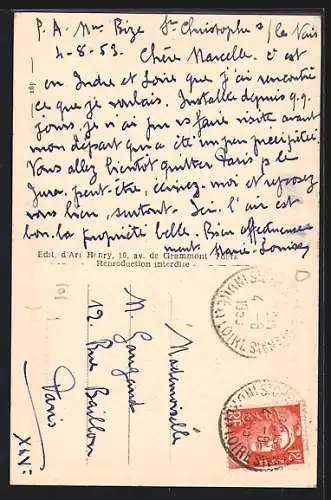 P. A. Mme Bize St Christophe s/le Nais
4-8-53. Chère Marcelle. c'est
en Indre et Loire que j'ai rencontré
ce que je voulais. Installée depuis q.q.
jours, je n'ai pu vs faire visite avant
mon départ qui a été un peu précipité.
Vous allez bientôt quitter Paris p le
Jura, peut-être, écrivez-moi et reposez
vous bien, surtout. Ici, l'air est
bon. la propriété belle. Bien affectueuse
ment. Marie-Louise
Edit. d'Art Henry, 10, av. de Grammont Tours
Reproduction interdite
Mademoiselle
M.
12, Rue Baillou
Paris
XIVe